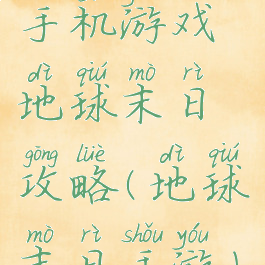 手机游戏
dì qiú mò rì
地球末日
gōng lüè dì qiú
攻略(地球
mò rì shǒu yóu
末日手游)